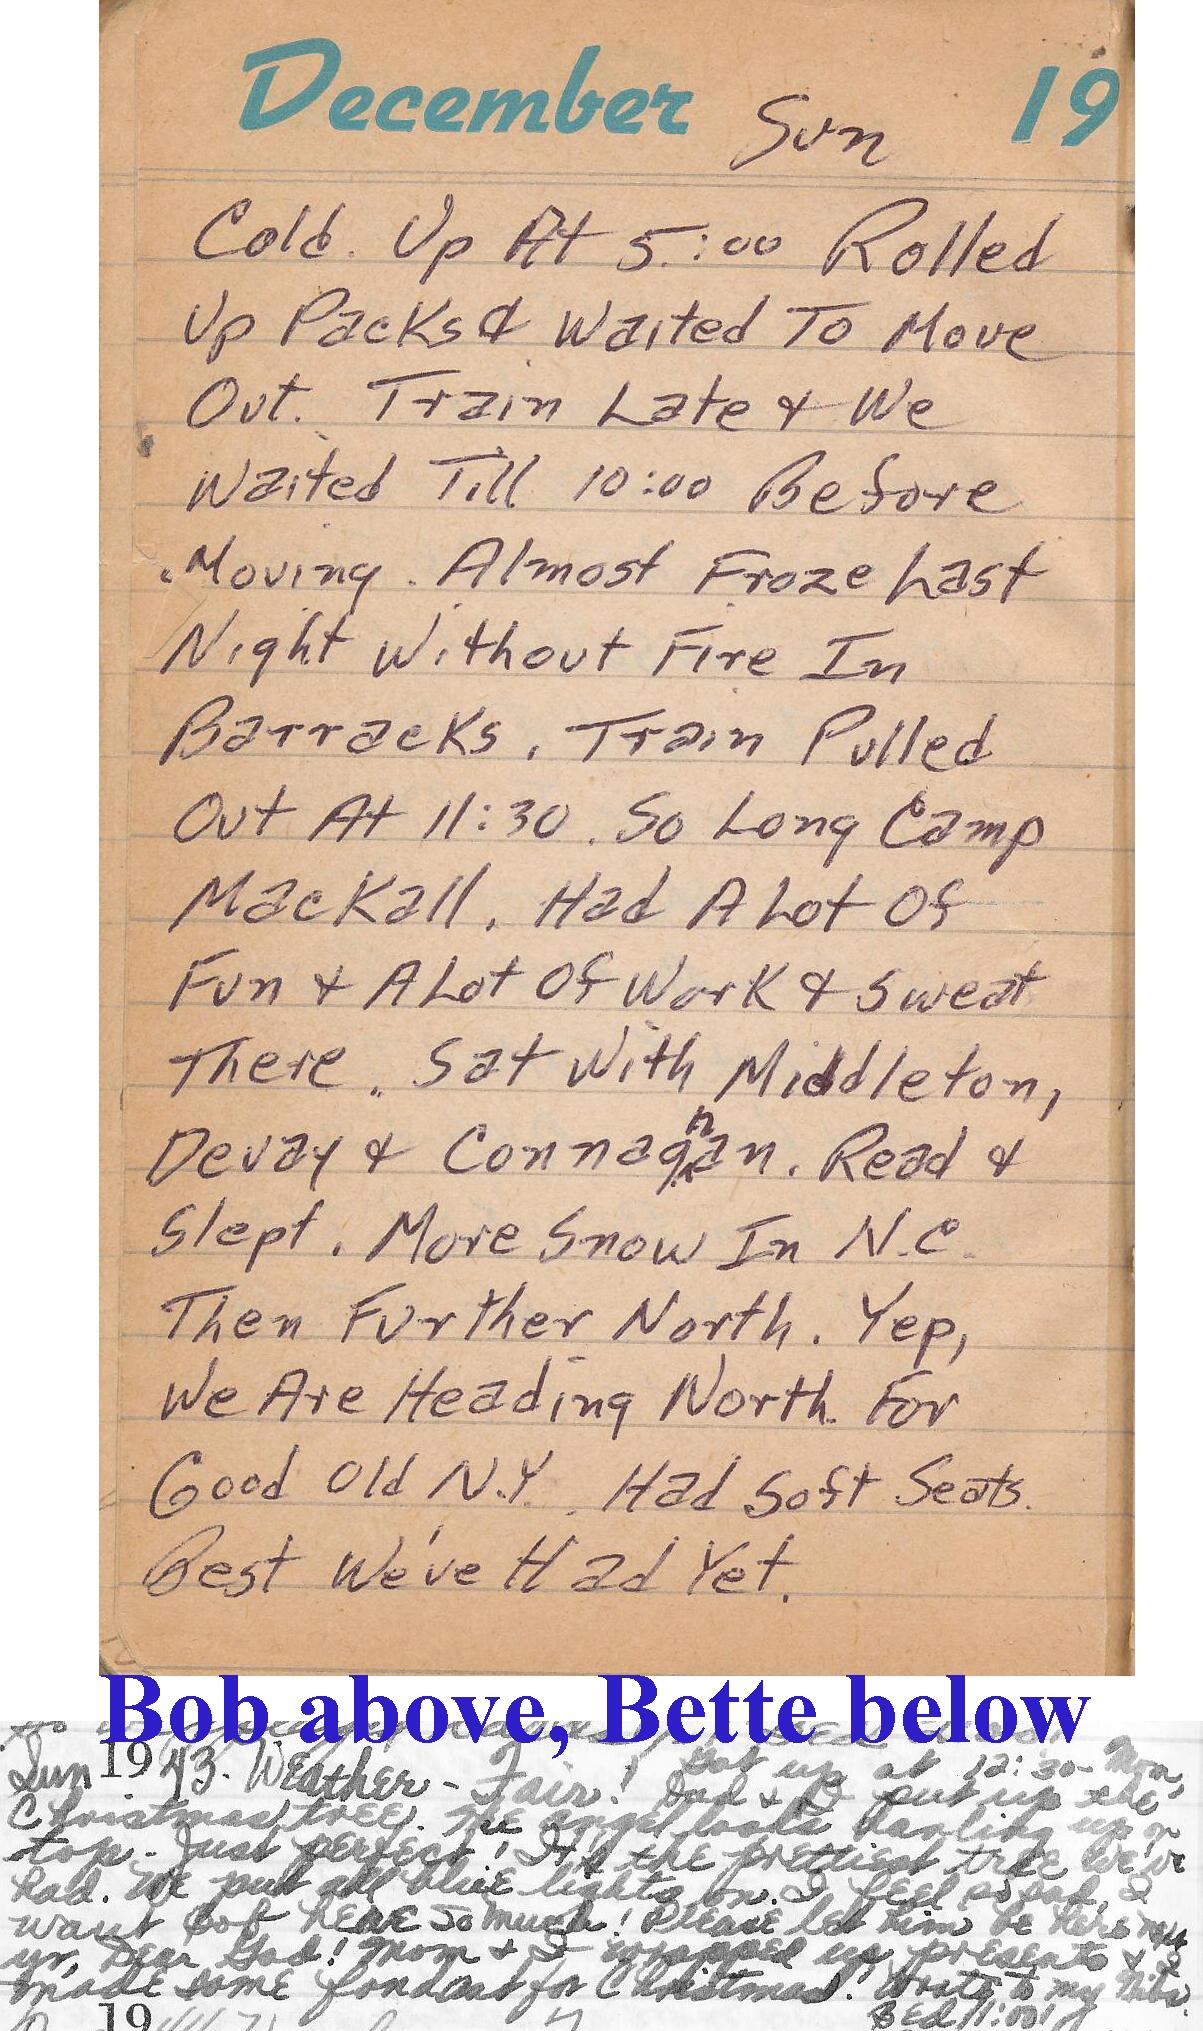 December Sun 19
Cold. Up At 5:00 Rolled
Up Packs & Waited To Move
Out. Train Late & We
Waited Till 10:00 Before
Moving. Almost Froze Last
Night Without Fire In
Barracks. Train Pulled
Out At 11:30. So Long Camp
MacKall. Had A Lot Of
Fun & A Lot Of Work & Sweat
There. Sat With Middleton,
Devay & Connagan. Read &
Slept. More Snow In N.C.
Then Further North. Yep,
We Are Heading North. For
Good Old N.Y. Had Soft Seats.
Best We've Had Yet.
Bob above, Bette below
Sun 19 43. Weather - Fair! Got up at 12:30 - Mom,
Dad & I put up the
Christmas tree. The angel looks darling up on
top. Just perfect! It's the prettiest tree we've
had. We put all blue lights on. I feel so sad, I
want Bob here so much! Please let him be here next
yr, Dear God! Mom & I wrapped up presents & I
made some fondant for Christmas! Wrote to my
Bed 11:00!
19